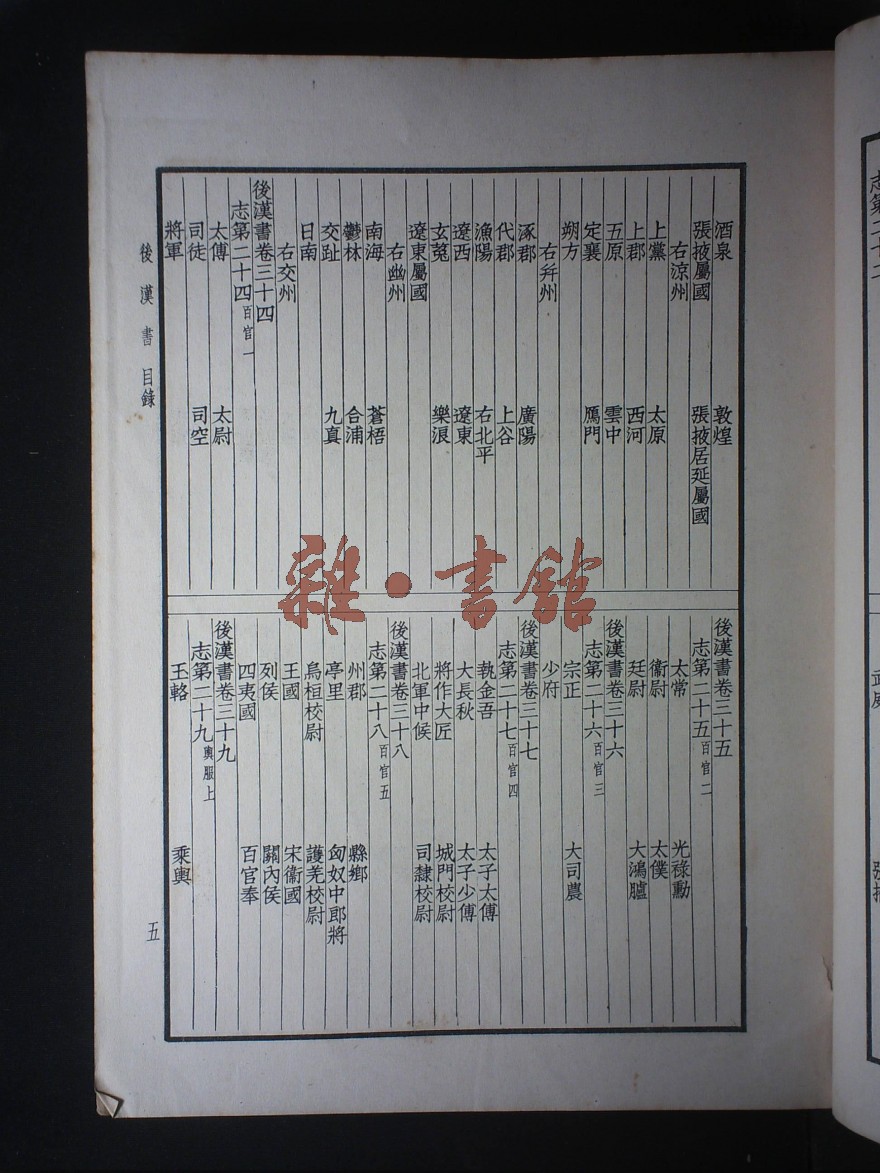 酒泉 敦煌
張掖屬國 張掖居延屬國
右涼州
上黨 太原
上郡 西河
五原 雲中
定襄 鴈門
朔方
右幷州
涿郡 廣陽
代郡 上谷
漁陽 右北平
遼西 遼東
玄菟 樂浪
遼東屬國
右幽州
南海 蒼梧
鬱林 合浦
交趾 九真
日南
右交州
後漢書卷三十四
志第二十四百官一
太傅 太尉
司徒 司空
將軍
後漢書卷三十五
志第二十五百官二
太常 光祿勳
衞尉 太僕
廷尉 大鴻臚
後漢書卷三十六
志第二十六百官三
宗正 大司農
少府
後漢書卷三十七
志第二十七百官四
執金吾 太子太傅
大長秋 太子少傅
將作大匠 城門校尉
北軍中候 司隸校尉
後漢書卷三十八
志第二十八百官五
州郡 縣鄉
亭里 匈奴中郎將
烏桓校尉 護羌校尉
王國 宋衞國
列侯 關內侯
四夷國 百官奉
後漢書卷三十九
志第二十九輿服上
玉輅 乘輿
後漢書 目錄
五
雜·書館
志第二十二
武威